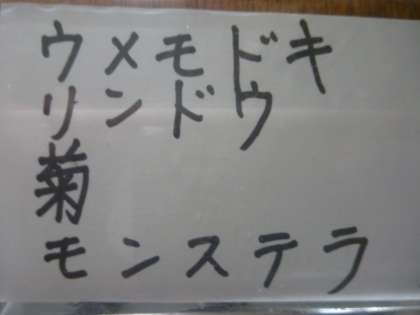 ウメモドキ
リンドウ
菊
モンステラ